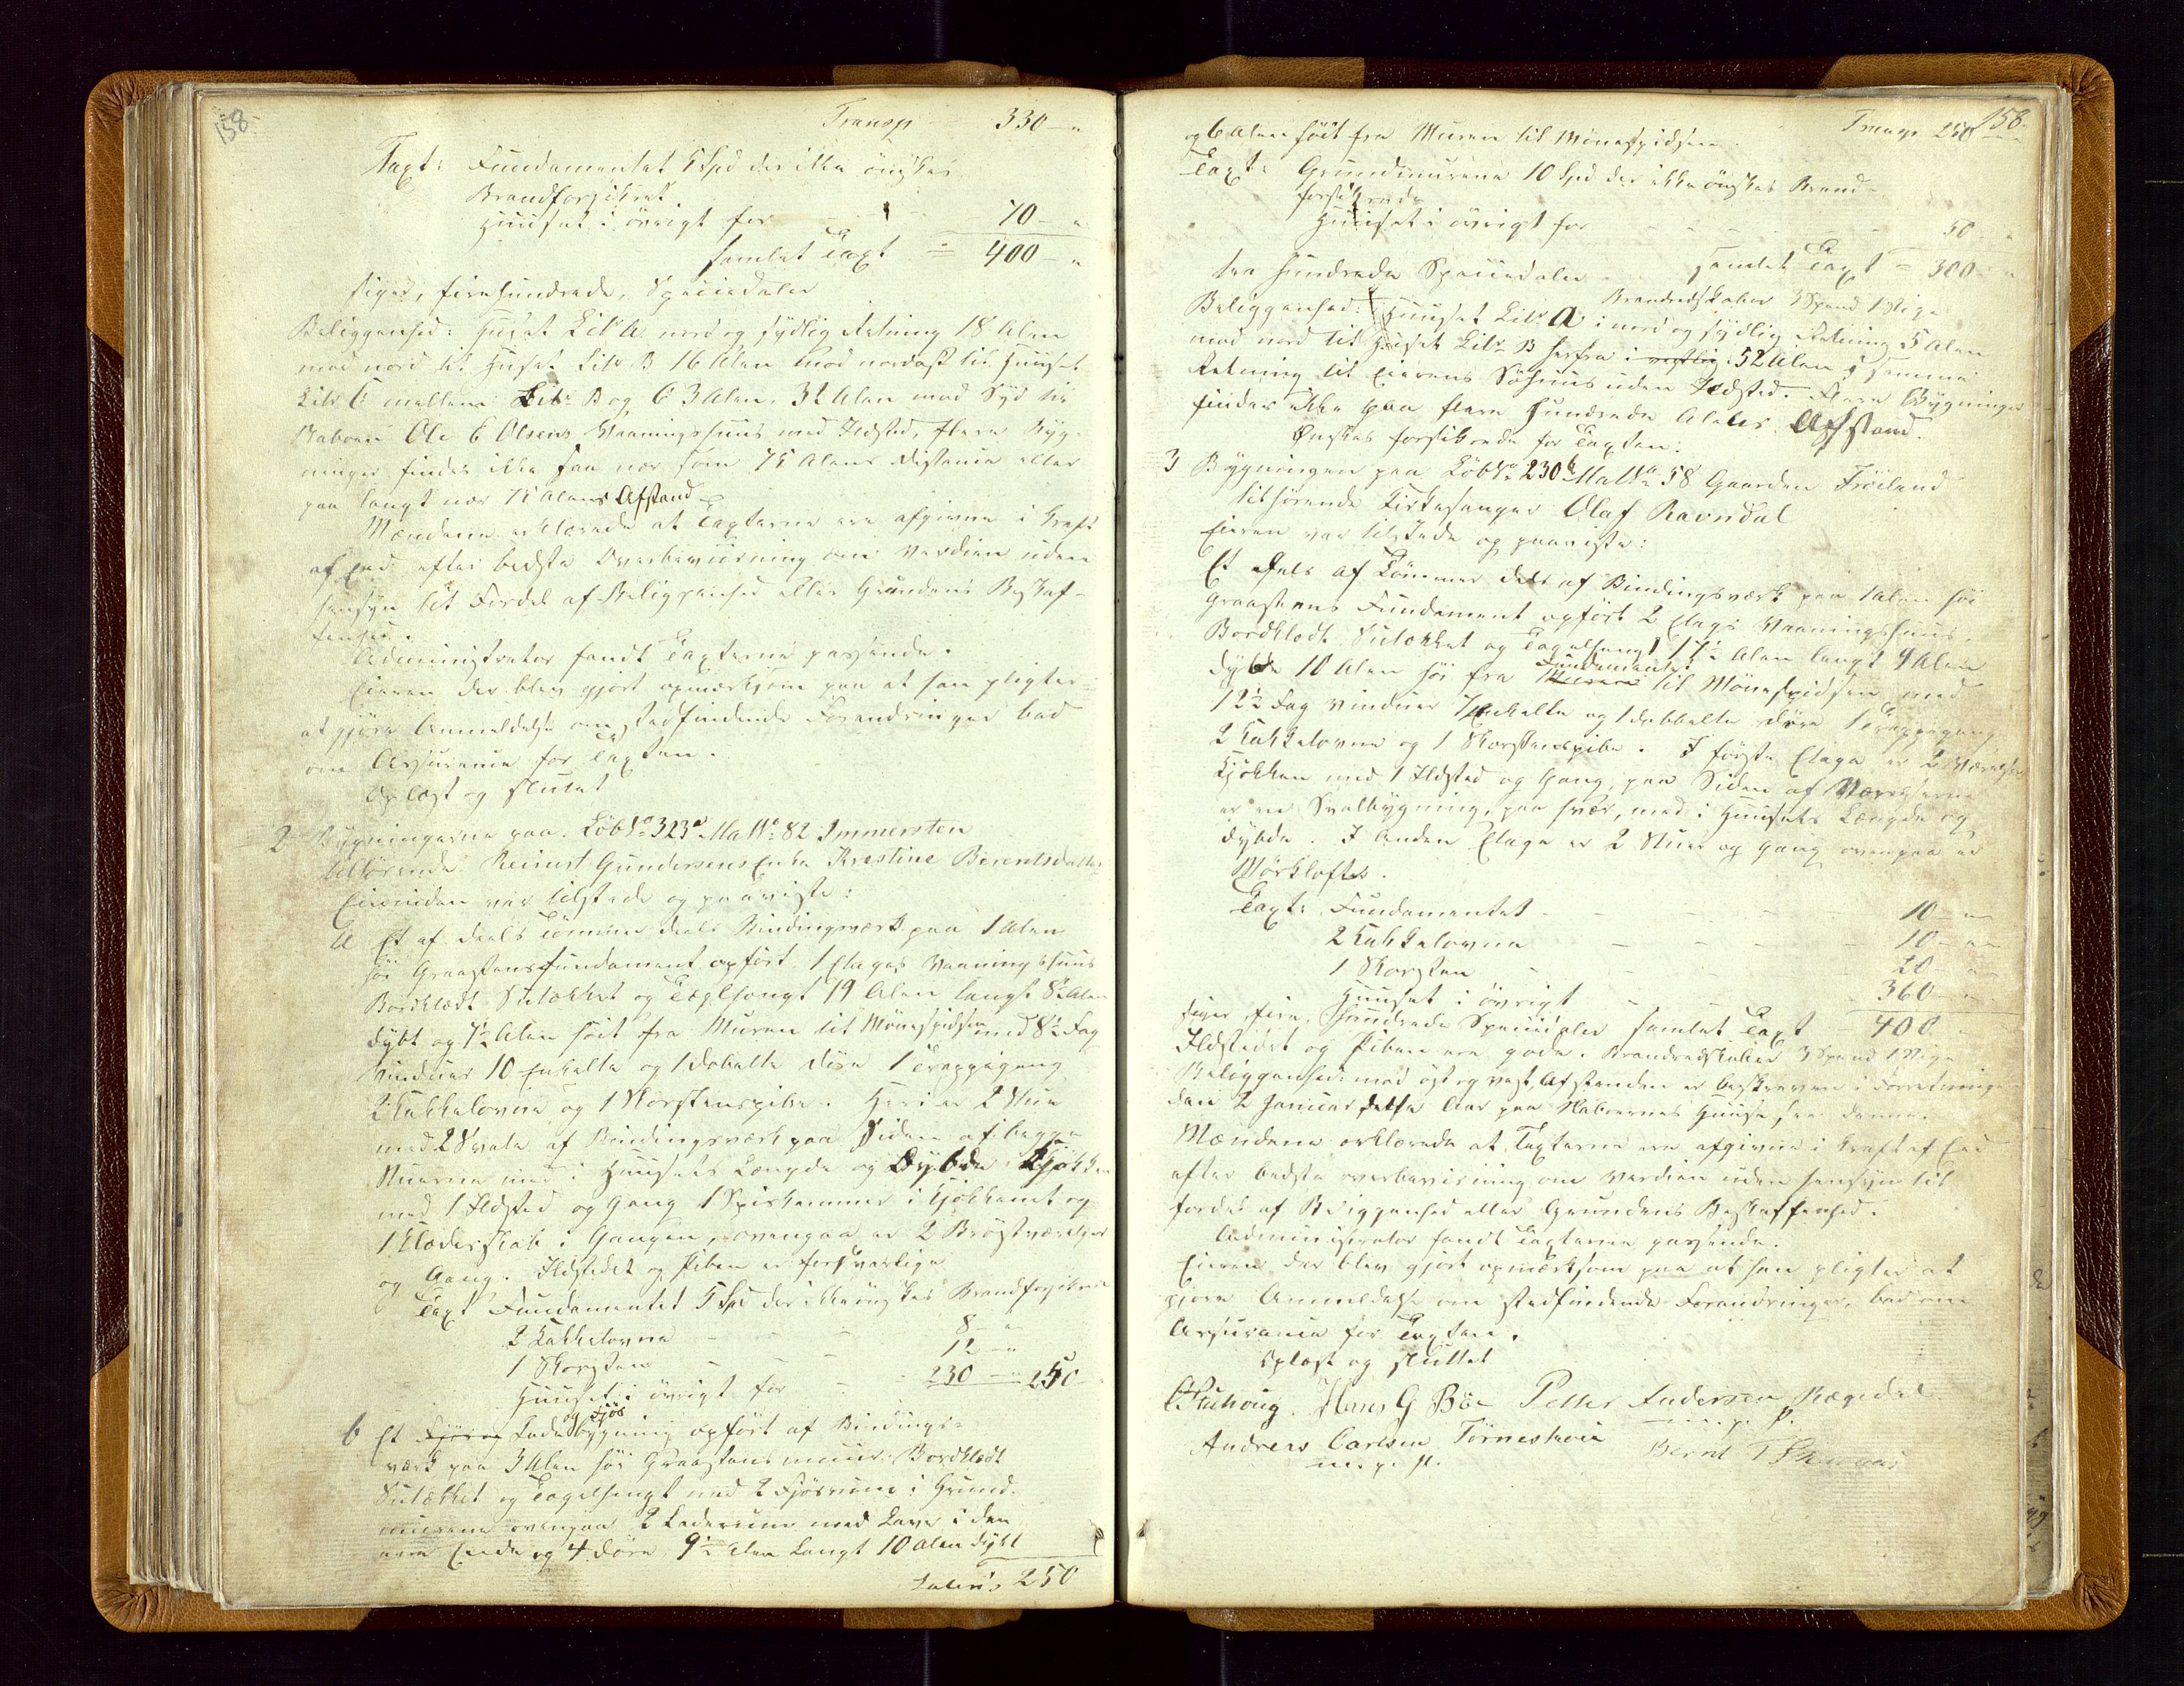 158.
Transp 330 - "
Taxt: Fundamentet 5 Spd der ikke önskes
Brandforsikret
Huuset i övrigt for - - - 70 - "
samlet Taxt = 400 - "
siger, firehundrede, Speciedaler
Beliggenhed: Huset Litr A nord og sydlig Retning 18 Alen
mod nord til Huset Litr B 16 Alen mod nordost til Huuset
Litr C mellem Litr B og C 3 Alen, 32 Alen mod Syd til
Naboen Ole C Olsens Vaaningshuus med Ildsted, flere Byg-
ninger findes ikke saa nær som 75 Alens Distance eller
paa langt nær 75 Alens Afstand
Mændene erklærede at Taxterne ere afgivne i Kraft
af Eed efter bedste Overbeviisning om Værdien uden
Hensyn til Fordel af Beliggenhed eller Grundens Beskaf-
fenhed.
Administrator fandt Taxterne passende.
Eieren der blev gjort opmærksom paa at han pligter
at gjöre Anmeldelse om stedfindende Forandringer bad
om Assurance for Taxten.
Oplæst og sluttet
2 Bygningerne paa Löb No 323a Ma No 82 Immersten
tilhörende Reinert Gundersens Enke Kirstine Berentsdatter
Eierinden var tilstede og paaviste:
A Et af deels Tömmer deels Bindingsværk paa 1 Alen
höi Graasteensfundament opfört 1 Etages Vaaningshuus
Bordklædt Sutækket og Tægelhængt 19 Alen langt 8½ Alen
dybt og 7½ Alen höit fra Muren til Mönespidsen med 8½ Fag
Vinduer 10 Enkelte og 1 dobbelte Döre 1 Trappegang
2 Kakkelovne og 1 Skorsteenspibe. Heri er 2 Stue
med 2 Svale af Bindingsværk paa Siden af begge
Stuerne med i Huusets Længde og Dybde Kjökken
med 1 Ildsted og Gang 1 Spiskammer i Kjökkenet og
1 Klædeskab i Gangen, ovenpaa er 2 Bröstværelser
og Gang. Ildstedet og Piben er forsvarlige
Taxt Fundamentet 5 Spd der ikke önskes Brandforsikret
2 Kakkelovne - - - 8 - "
1 Skorsten - - - 12 - "
Huuset i övrigt for - - 230 - " 250 -
B Et Fjös og Ladebygning og Fjös opfört af Bindings-
værk paa 3 Alen höi Graasteens muur. Bordklædt
Sutækket og Tagelhængt med 2 Fjösrum i Grund-
murene ovenpaa 2 Laderum med Lave i den
ene Ende og 4 Döre 9½ Alen langt 10 Alen dybt
Lateris 250
Transp 250 158.
og 6 Alen höit fra Muren til Mönespidsen.
Taxt: Grundmurene 10 Spd der ikke önskes Brand-
forsikrede
Huuset i övrigt for - - - - 50 - "
tre Hundrede Speciedaler samlet Taxt = 300 "
Brandredskaber 3 Spand 1 Stige
Beliggenhed: Huuset Litr A i nord og sydlig Retning 5 Alen
mod nord til Huset Litr B herfra i vestlig 52 Alen i samme
Retning til Eierens Söhuus uden Ildsted. Flere Bygninger
findes ikke paa flere Hundrede Alens Afstand.
Önskes forsikrede for Taxten.
3 Bygningen paa Löb No 230b Ma No 58 Gaarden Fröiland
tilhörende Kirkesanger Olaf Ravndal
Eieren var tilstede og paaviste:
Et dels af Tömmer dels af Bindingsværk paa 1 Alen höi
Graasteens Fundament opfört 2 Etages Vaaningshuus,
Bordklædt Sutækket og Tagelhængt 17½ Alen langt 9 Alen
dybde 10 Alen höi fra Muren Fundamentet til Mönespidsen med
12½ Fag Vinduer 7 Enkelte og 1 dobbelte Döre 1 Trappegang
2 Kakkelovne og 1 Skorsteenspibe. I förste Etage er 2 Værelser
Kjökken med 1 Ildsted og Gang, paa Siden af Værelserne
er en Svalbygning, paa hver, med i Huusets Længde og
Dybde. I anden Etage er 2 Stuer og Gang ovenpaa er
Mörklofter.
Taxt: Fundamentet - - - - 10 - "
2 Kakkelovne - - - 10 - "
1 Skorsten - - - 20 - "
Huuset i övrigt - - - 360 - "
siger fire Hundrede Speciedaler samlet Taxt 400 "
Ildstedet og Piben ere gode. Brandredskaber 3 Spand 1 Stige
Beliggenhed: mod öst og vest, Afstanden er beskreven i Forretning
den 2 Januar dette Aar paa Naboernes Huuse, see denne.
Mændene erklærede at Taxterne ere afgivne i Kraft af Eed
efter bedste overbeviisning om Værdien uden Hensyn til
fordel af Beliggenhed eller Grundens Beskaffenhed.
Administrator fandt Taxterne passende.
Eieren der blev gjort opmærksom paa at han pligter at
gjöre Anmeldelse om stedfindende Forandringer, bad om
Assurance for Taxten.
Oplæst og sluttet
Hans G Böe Petter Andersen Rægedal
m. p. P.
Andreas Carlsen Törneshoie Bernt T
m. p. P.